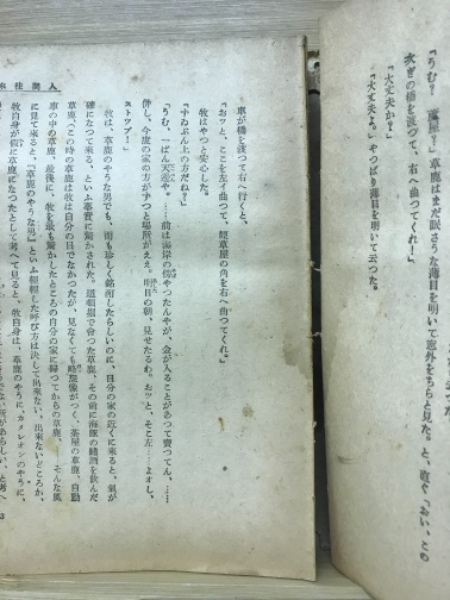 「うむ？　蘆屋？」草鹿はまだ眠さうな薄目を明いて窓外をちらと見た。と、直ぐ「おい、この
次ぎの橋を渡つて、右へ曲つてくれ！」
「大丈夫か？」
「大丈夫よ。」やつぱり薄目を明いて云つた。
人間社
車が橋を渡つて右へ行くと、
「おツと、ここを左イ曲つて、煙草屋の角を右へ曲つてくれ。」
牧はやつと安心した。
「すゐぶん上の方だね？」
「うむ、一ばん天邊や。……前は海岸の傍やつたんやが、金が入ることがあつて賣つてん、……
併し、今度の家の方がずつと場所がええ。明日の朝、見せたるわ。おツと、そこ左……よオし、
ストツプ！」
牧は、草鹿のやうな男でも、而も珍しく銘酊したらしいのに、自分の家の近くに來ると、氣が
確になつて來る、といふ事實に驚かされた。道頓堀で會つた草鹿、その前に海豚の鰭酒を飮んだ
草鹿（この時の草鹿は牧は自分の目でなかつたが、見なくても想像がつく、茶屋の草鹿、自動
車の中の草鹿、最後に、牧を最も驚かしたところの自分の家に歸つてからの草鹿、――そんな風
に見て來ると、『草鹿のやうな男』といふ輕輕した呼び方は決して出來ない、出來ないどころか、
牧自身が假に草鹿になつたとして考へて見ると、牧自身は、草鹿のやうに、カメレオンのやうに、